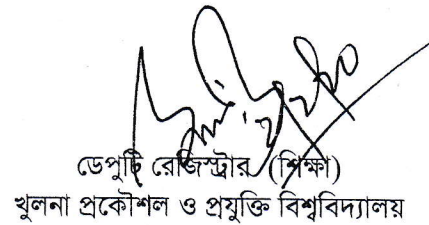 ডেপুটি রেজিস্ট্রার (শিক্ষা)
খুলনা প্রকৌশল ও প্রযুক্তি বিশ্ববিদ্যালয়